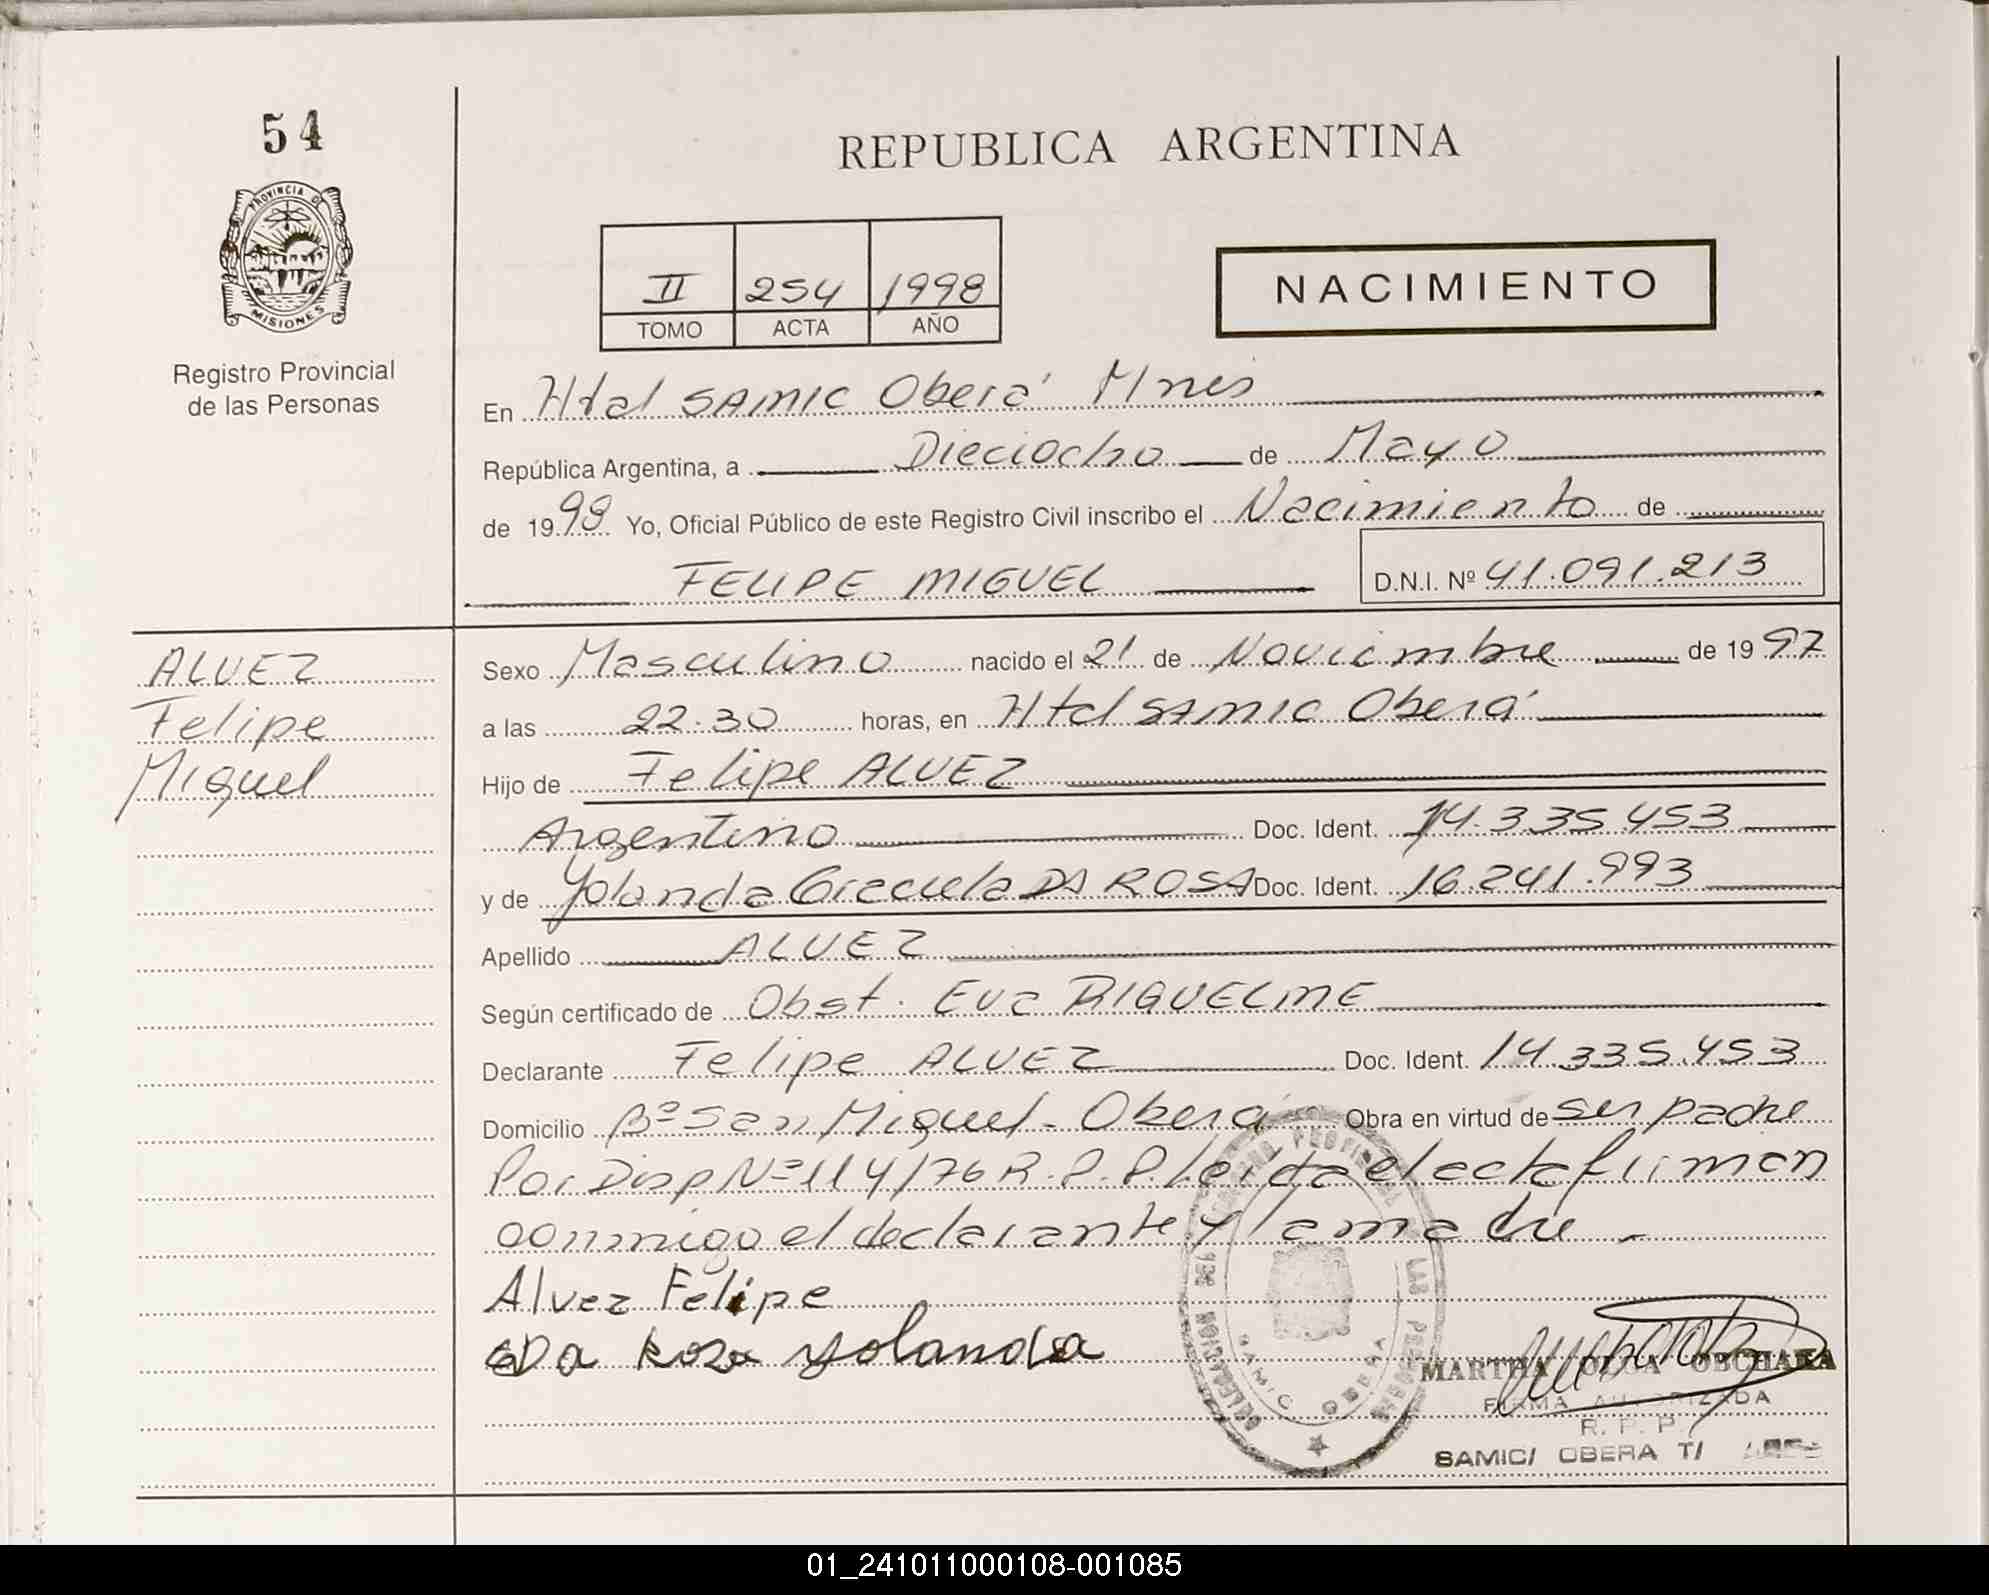 54
PROVINCIA DE
MISIONES
Registro Provincial
de las Personas
REPUBLICA ARGENTINA
II 254 1998
TOMO ACTA AÑO
NACIMIENTO
En Htal SAMIC Oberá Mnes
República Argentina, a Dieciocho de Mayo
de 1998 Yo, Oficial Público de este Registro Civil inscribo el Nacimiento de
FELIPE MIGUEL D.N.I. Nº 41.091.213
ALVEZ
Felipe
Miguel
Sexo Masculino nacido el 21 de Noviembre de 1997
a las 22.30 horas, en Htal SAMIC Oberá
Hijo de Felipe ALVEZ
Argentino Doc. Ident. 14.335.453
y de Yolanda Graciela DA ROSA Doc. Ident. 16.241.993
Apellido ALVEZ
Según certificado de Obst. Eva RIQUELME
Declarante Felipe ALVEZ Doc. Ident. 14.335.453
Domicilio Bº San Miguel - Oberá Obra en virtud de ser padre
Por Disp Nº 114/76 R.P.P. Leída el acta firman
conmigo el declarante y la madre -
Alvez Felipe
Da Rosa Yolanda
SAMIC OBERA
MARTHA OLGA
FIRMA AUTORIZADA
R. P. P.
SAMIC/ OBERA T/
01_241011000108-001085